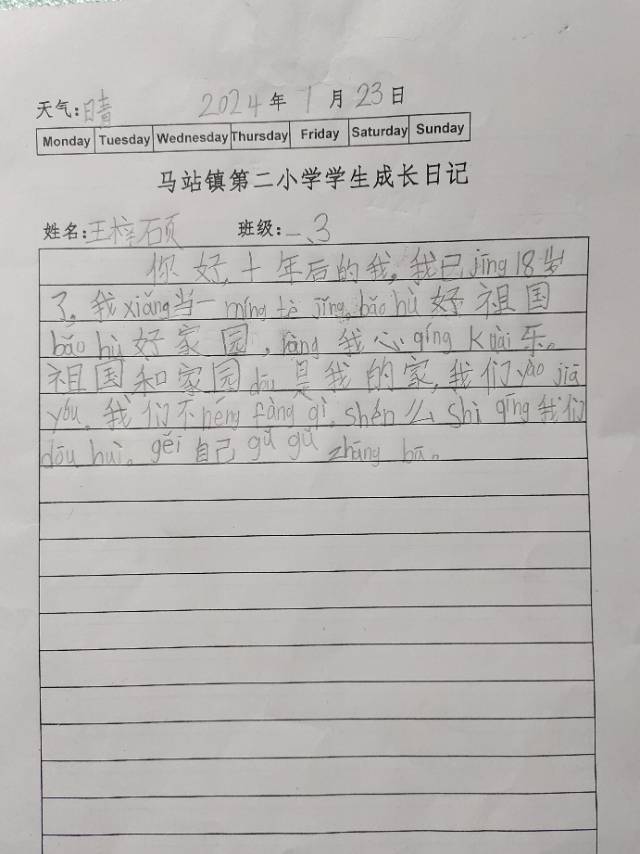 天气:晴 2024年1月23日
Monday Tuesday Wednesday Thursday Friday Saturday Sunday
马站镇第二小学学生成长日记
姓名:王梓硕 班级:一、3
你好,十年后的我,我已jīng18岁
了。我xiǎng当一míng tè jǐng。bǎo hù好祖国
bǎo hù好家园,ràng我心qíng kuài乐。
祖国和家园dōu是我的家,我们yào jiā
yóu。我们不néng fàng qì。shén么shì qīng我们
dōu huì。gěi自己gǔ gǔ zhǎng bā。